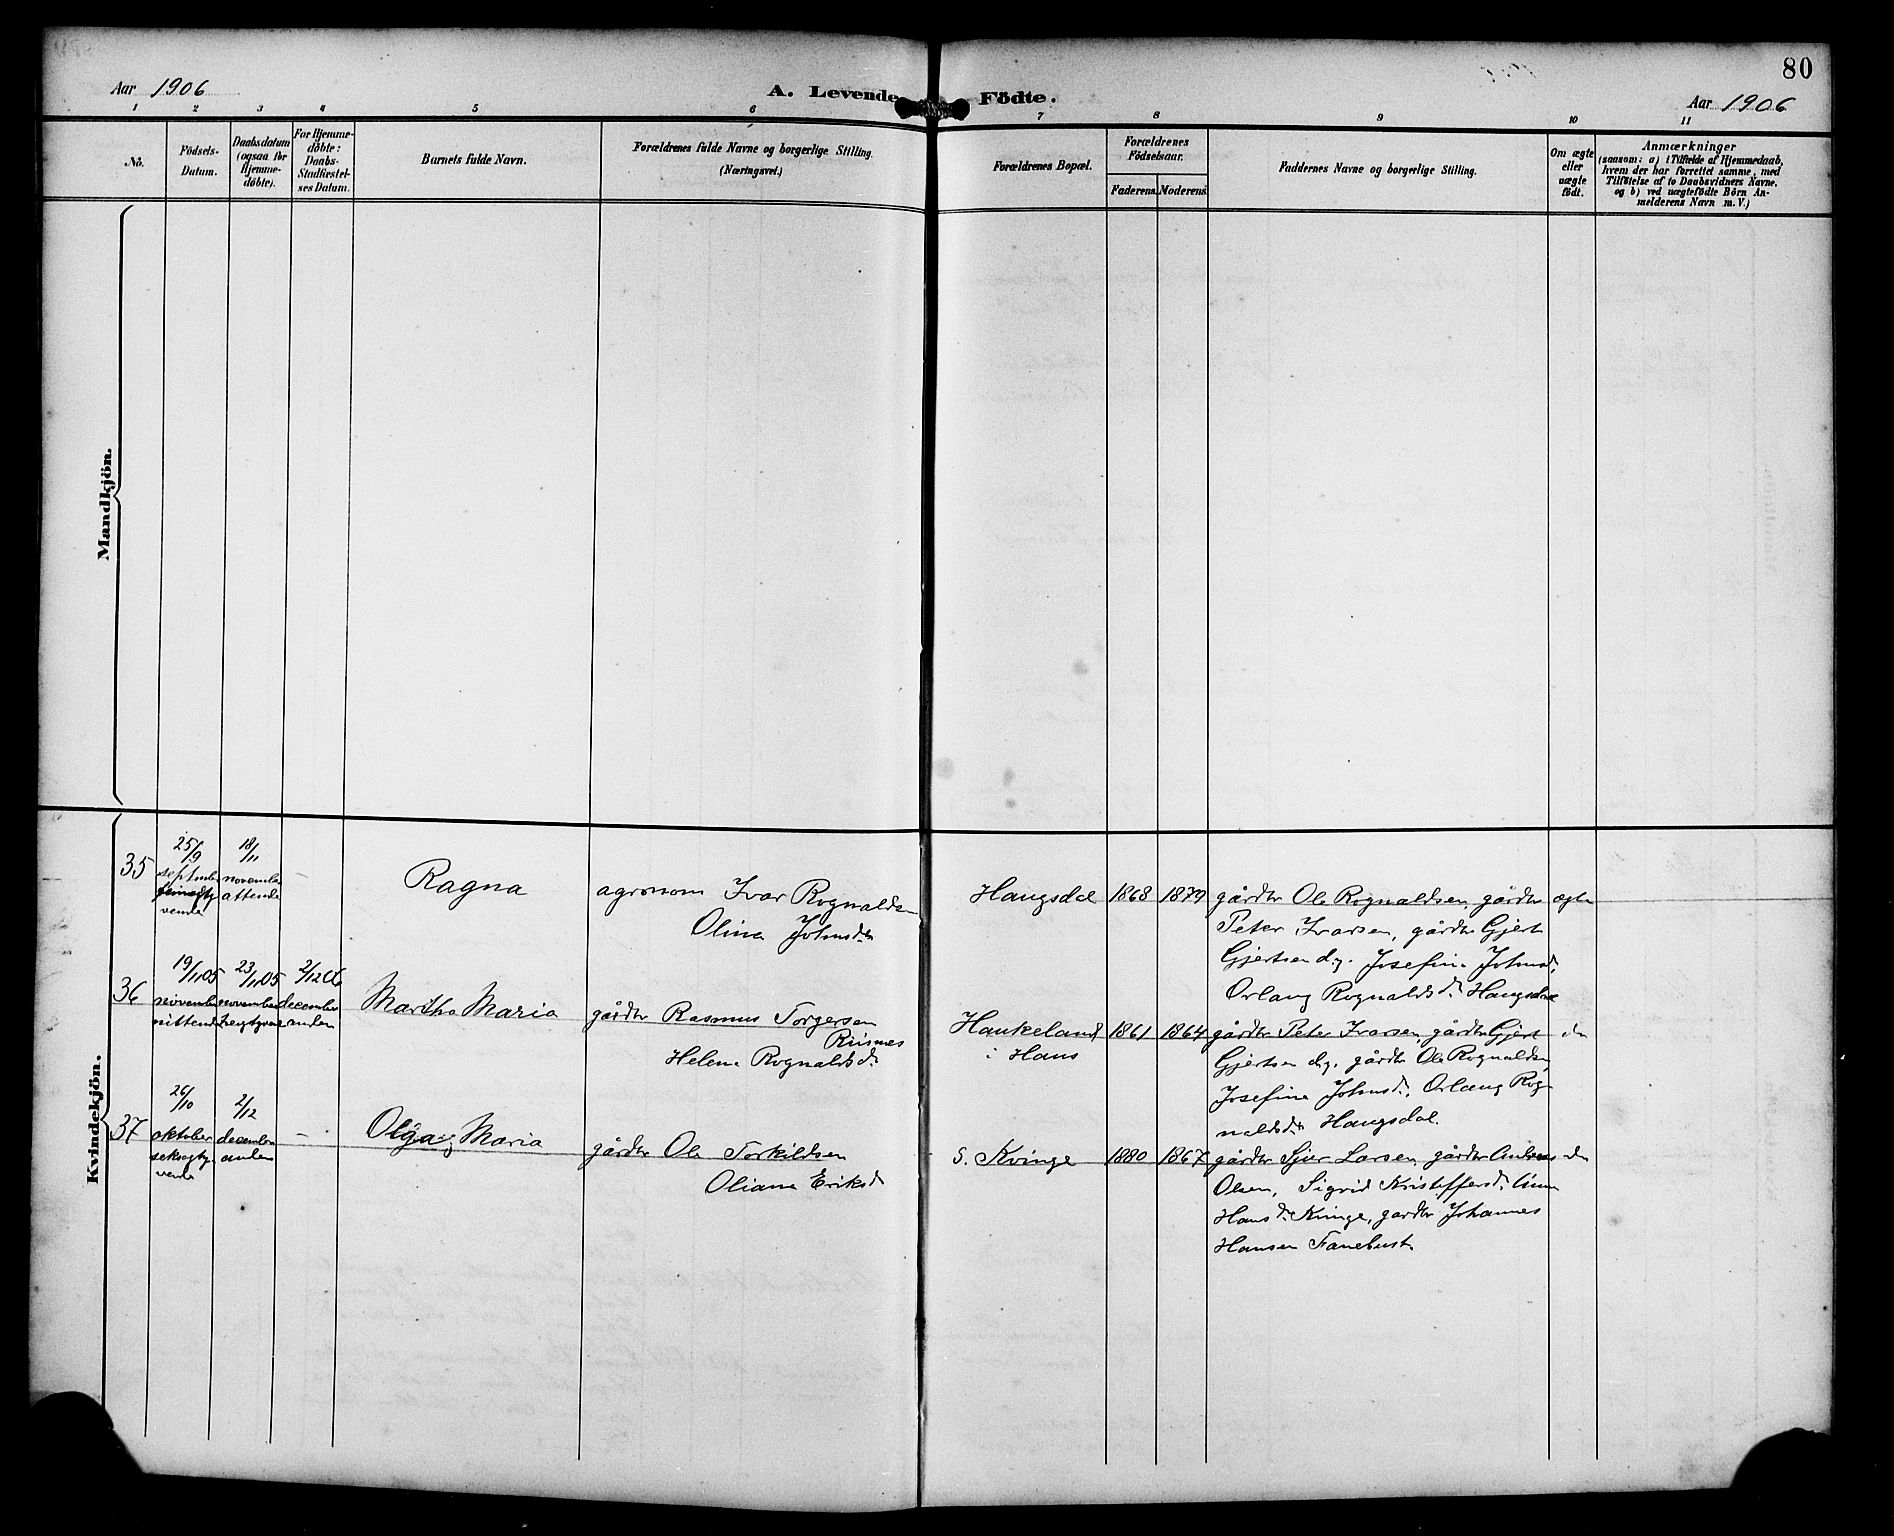 80
Aar 1906
A. Levende Födte.
Aar 1906
1 2 3 4 5 6 7 8 9 10 11
No.
Födsels-
Datum.
Daabsdatum
(ogsaa for
Hjemme-
døbte).
For Hjemme-
døbte:
Daabs-
Stadfæstel-
ses Datum.
Barnets fulde Navn.
Forældrenes fulde Navne og borgerlige Stilling.
(Næringsvei.)
Forældrenes Bopæl.
Forældrenes
Födselsaar.
Faderens. Moderens.
Faddernes Navne og borgerlige Stilling.
Om ægte
eller
uægte
født.
Anmærkninger
(saasom: a) i Tilfælde af Hjemmedaab,
hvem der har forrettet samme, med
Tilføielse af to Daabsvidners Navne,
og b) ved uægtefødte Börn An-
melderens Navn m. V.)
Mandkjön.
Kvindekjön.
35
25/9
september
femogty
vende
18/11
november
attende
–
Ragna
agronom Ivar Rognaldsen
Olina Johnsdr
Haugsdal
1868
1879
gårdbr Ole Rognaldsen, gårdbr
Peter Ivarsen, gårdbr Gjert
Gjertsen d.y. Josefine Johnsd.
Orlaug Rognaldsdr Haugsdal
ægte
36
19/11 05
november
nittende
23/11 05
november
2/12 06
december
anden
Martha Maria
gårdbr Rasmus Torgersen
Risnes
Helene Rognaldsdr
Haukeland
i Haus
1861
1864
gårdbr Peter Ivarsen, gårdbr Gjert
Gjertsen d.y. gårdbr Ole Rognaldsen,
Josefine Johnsdr, Orlaug Rog-
naldsdr Haugsdal.
do
37
26/10
oktober
seksogty
vende
2/12
december
anden
–
Olga Maria
gårdbr Ole Torkildsen
Oliana Eriksd
S. Kvinge
1880
1867
gårdbr Sjur Larsen, gårdbr Andreas
Olsen, Sigrid Kristoffersdr,
Hansdr Kvinge, gårdbr Johannes
Hansen Fanebust.
do